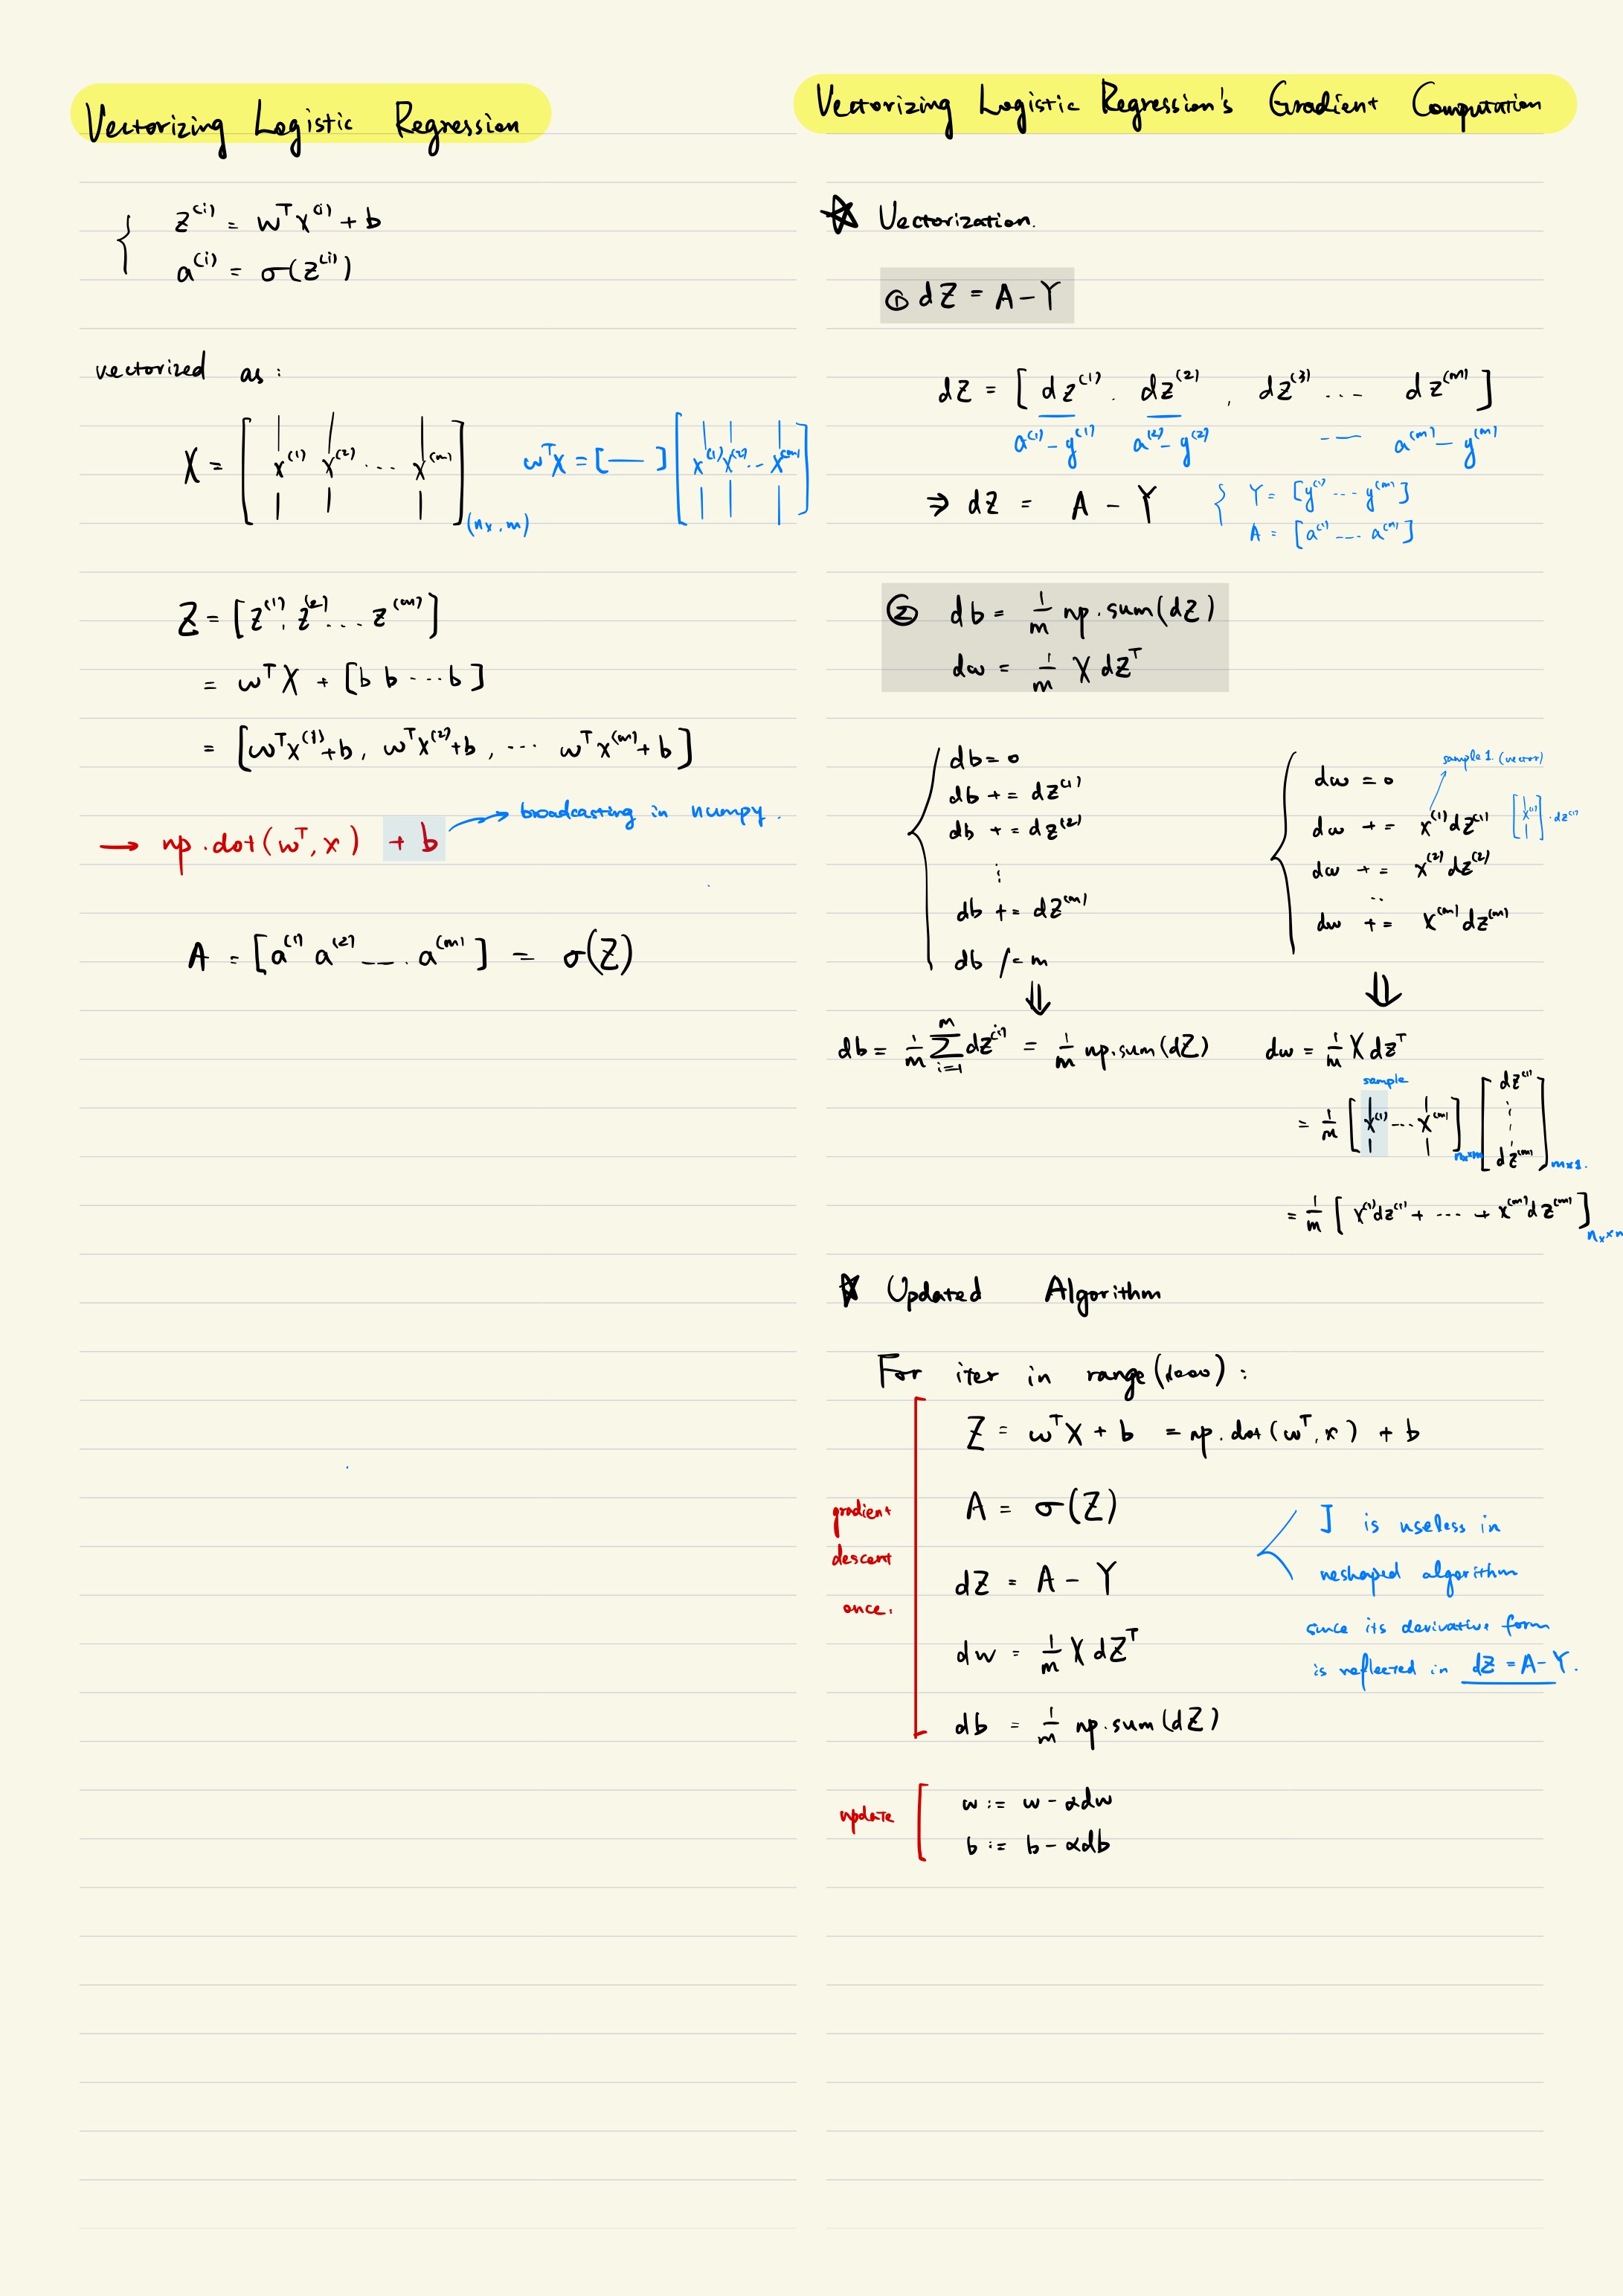 Vectorizing Logistic Regression
z^(i) = w^T x^(i) + b
a^(i) = σ(z^(i))
vectorized as :
X = [ x^(1) x^(2) ... x^(m) ] (nx, m)
w^T X = [ — ] [ x^(1) x^(2) ... x^(m) ]
Z = [ z^(1), z^(2) ... z^(m) ]
= w^T X + [ b b ... b ]
= [ w^T x^(1) + b, w^T x^(2) + b, ... w^T x^(m) + b ]
→ np.dot(w^T, x) + b → broadcasting in numpy.
A = [ a^(1) a^(2) ... a^(m) ] = σ(Z)
Vectorizing Logistic Regression's Gradient Computation
☆ Vectorization.
① dZ = A - Y
dZ = [ dz^(1), dz^(2), dz^(3) ... dz^(m) ]
a^(1) - y^(1) a^(2) - y^(2) ---- a^(m) - y^(m)
⇒ dZ = A - Y
Y = [ y^(1) ... y^(m) ]
A = [ a^(1) ... a^(m) ]
② db = 1/m np.sum(dZ)
dw = 1/m X dZ^T
db = 0
db += dz^(1)
db += dz^(2)
⋮
db += dz^(m)
db /= m
⇓
db = 1/m Σ_{i=1}^{m} dz^(i) = 1/m np.sum(dZ)
sample 1. (vector)
dw = 0
dw += x^(1) dz^(1) [ x^(1) ] · dz^(1)
dw += x^(2) dz^(2)
..
dw += x^(m) dz^(m)
⇓
dw = 1/m X dz^T
sample
= 1/m [ x^(1) ... x^(m) ] nx×m [ dz^(1) ⋮ dz^(m) ] m×1.
= 1/m [ x^(1) dz^(1) + ... + x^(m) dz^(m) ]
☆ Updated Algorithm
For iter in range(1000) :
Z = w^T X + b = np.dot(w^T, x) + b
A = σ(Z)
dZ = A - Y
dw = 1/m X dZ^T
db = 1/m np.sum(dZ)
gradient
descent
once.
J is useless in
reshaped algorithm
since its derivative form
is reflected in dZ = A - Y.
update
w := w - αdw
b := b - αdb